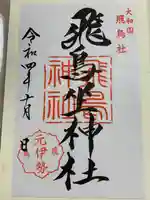 大和国
飛鳥社
飛鳥坐神社
飛鳥
神社
元伊勢
令和四年十月
日